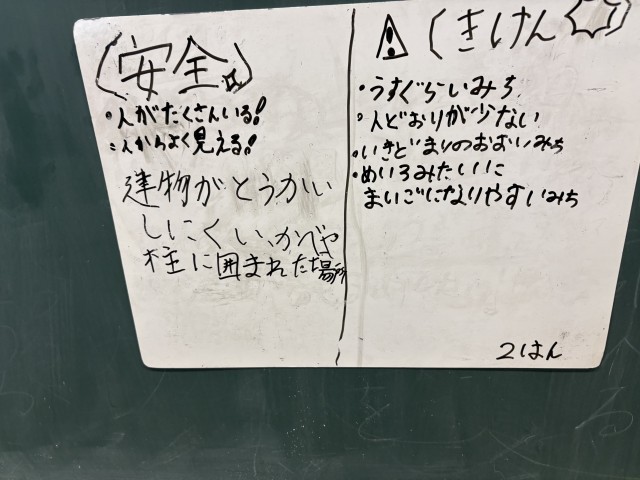 (安全)
・人がたくさんいる!
・人からよく見える!
建物がとうかい
しにくい、かべや
柱に囲まれた場所
⚠(きけん
・うすぐらいみち
・人どおりが少ない
・いきどまりのおおいみち
・めいろみたいに
まいごになりやすいみち
2はん